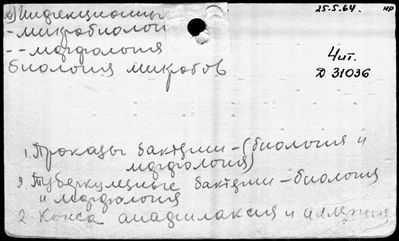 25.5.64. нр
а) Инфекционны
- микробиологи
-- морфология
биология микробов
Чит.
Д 31036
1. Проказы бактерии - (биология и
морфология)
2. Туберкулезные бактерии - биология
и морфология
2. Кокса анафилаксия и аллергия